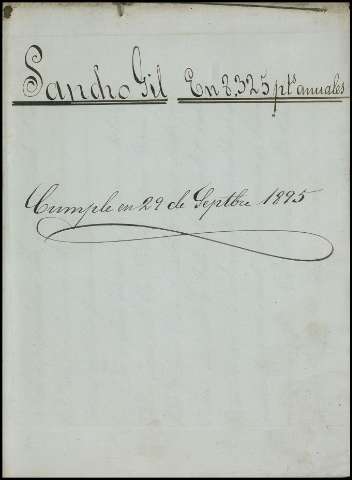 Sancho Gil En 8,325 pts anuales
Cumple en 29 de Septbre 1895